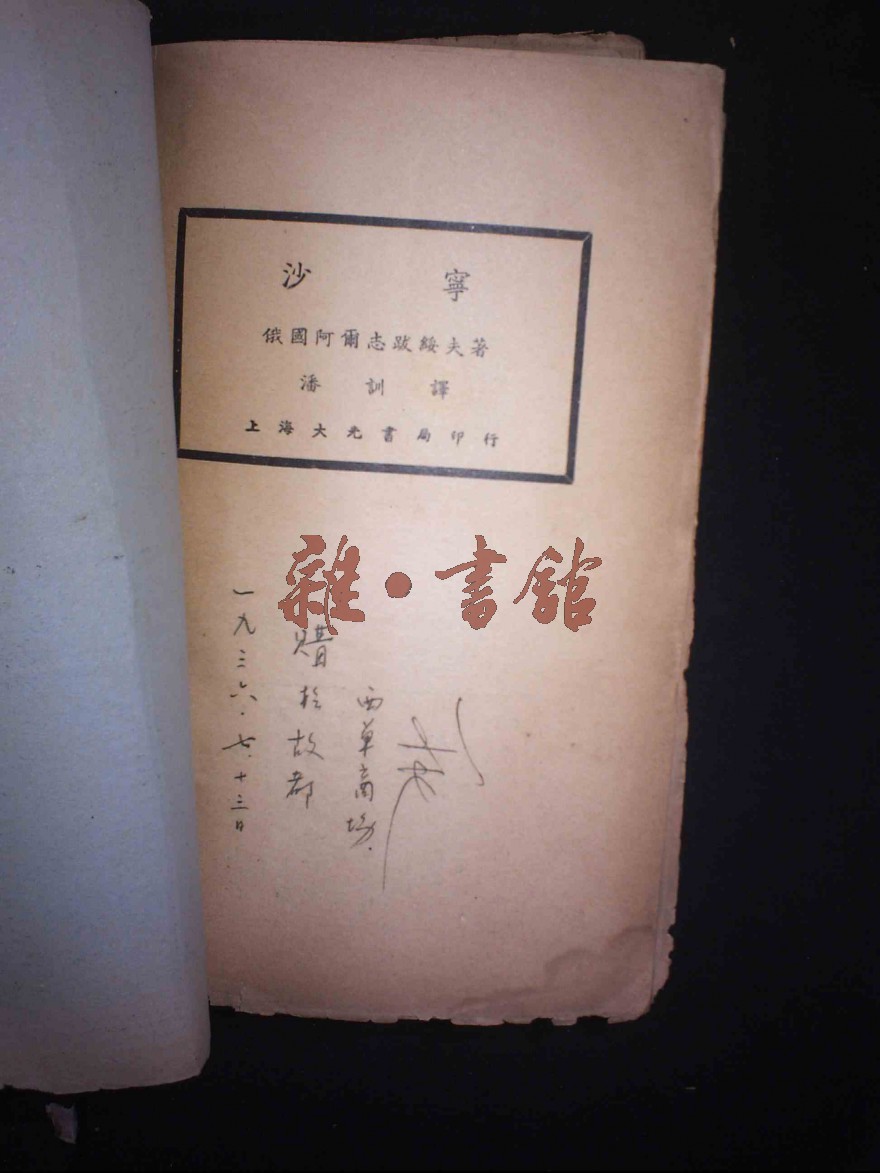 沙寧
俄國阿爾志跋綏夫著
潘訓譯
上海大光書局印行
雜·書館
一九三六·七·十三日
購於故都
西單商場.